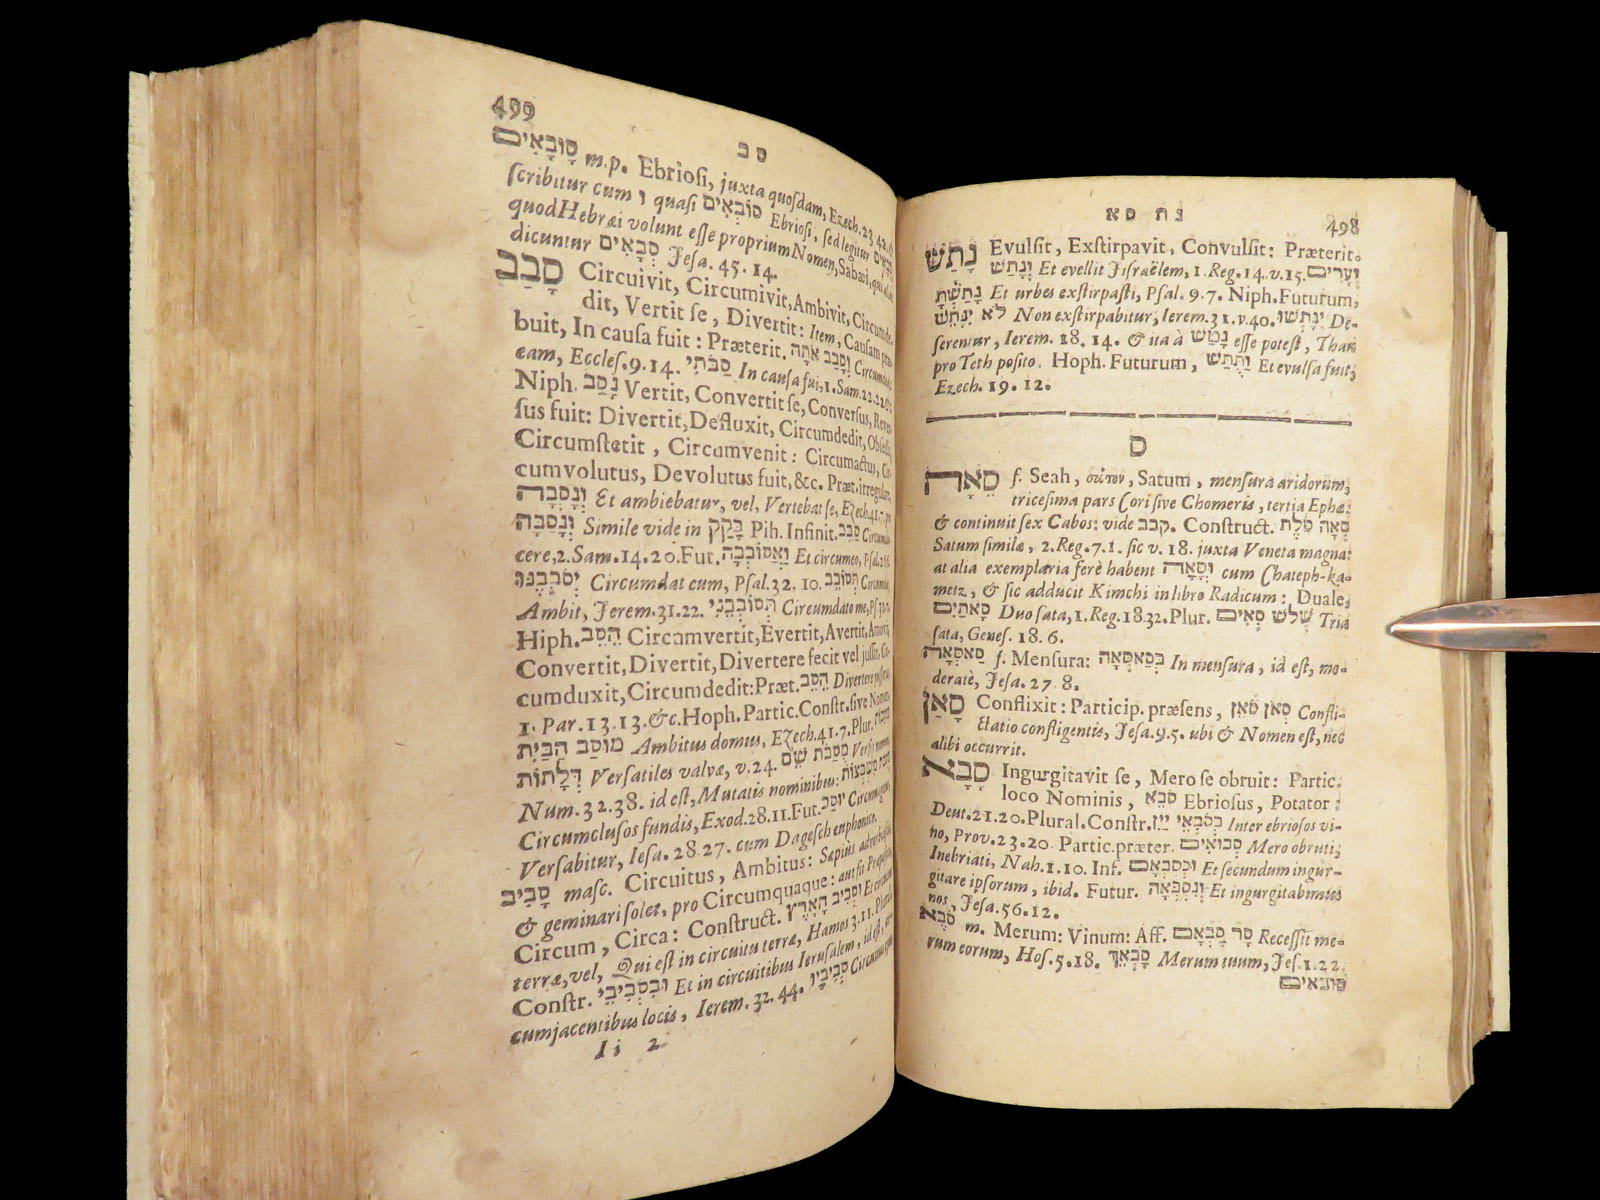 נת סא 498
נָתַשׁ Evulſit, Exſtirpavit, Convulſit: Præterit.
וְנָתַשׁ Et evellit Jiſraëlem, 1. Reg. 14. v. 15. וְעָרִים
נָתַשְׁתָּ Et urbes exſtirpaſti, Pſal. 9. 7. Niph. Futurum,
לֹא יִנָּתֵשׁ Non exſtirpabitur, Ierem. 31. v. 40. יִנָּתְשׁוּ De-
ſerentur, Ierem. 18. 14. & ita à נָטַשׁ eſſe poteſt, Thau
pro Teth poſito. Hoph. Futurum, וַתֻּתַּשׁ Et evulſa fuit,
Ezech. 19. 12.
ס
סְאָה f. Seah, σάτον, Satum, menſura aridorum,
triceſima pars Cori ſive Chomeris, tertia Ephæ:
& continuit ſex Cabos: vide קבב. Conſtruct. סְאָה סֹלֶת
Satum ſimilæ, 2. Reg. 7. 1. ſic v. 18. juxta Veneta magna:
at alia exemplaria ferè habent וּסְאָה cum Chateph-ka-
metz, & ſic adducit Kimchi in libro Radicum: Duale,
סָאתַיִם Duo ſata, 1. Reg. 18. 32. Plur. שְׁלֹשׁ סְאִים Tria
ſata, Geneſ. 18. 6.
סַאסְּאָה f. Menſura: בְּסַאסְּאָה In menſura, id eſt, mo-
deratè, Jeſa. 27. 8.
סָאַן Conflixit: Particip. præſens, סֹאֵן סְאוֹן Confli-
ctatio confligentis, Jeſa. 9. 5. ubi & Nomen eſt, nec
alibi occurrit.
סָבָא Ingurgitavit ſe, Mero ſe obruit: Partic.
loco Nominis, סֹבֵא Ebrioſus, Potator:
Deut. 21. 20. Plural. Conſtr. בְּסֹבְאֵי יַיִן Inter ebrioſos vi-
no, Prov. 23. 20. Partic. præter. סְבוּאִים Mero obruti,
Inebriati, Nah. 1. 10. Inf. וּכְסָבְאָם Et ſecundum ingur-
gitare ipſorum, ibid. Futur. וְנִסְבְּאָה Et ingurgitabimus
nos, Jeſa. 56. 12.
סֹבֶא m. Merum: Vinum: Aff. סָר סָבְאָם Receſſit me-
rum eorum, Hoſ. 5. 18. סָבְאֵךְ Merum tuum, Jeſ. 1. 22.
סובאים
499 סב
סָוּבָאִים m. p. Ebrioſi, juxta quoſdam, Ezech. 23. 42.
ſcribitur cum ו quaſi סוֹבְאִים Ebrioſi, ſed legitur
quod Hebræi volunt eſſe proprium Nomen, Sabæi, qui
dicuntur סְבָאִים Jeſa. 45. 14.
סָבַב Circuivit, Circumivit, Ambivit, Circumde-
dit, Vertit ſe, Divertit: Item, Cauſam præ-
buit, In cauſa fuit: Præterit. וְסָבַב אֹתָהּ Circumdabit
eam, Eccleſ. 9. 14. סַבֹּתִי In cauſa fui, 1. Sam. 22. 22.
Niph. נָסַב Vertit, Convertit ſe, Converſus, Rever-
ſus fuit: Divertit, Defluxit, Circumdedit, Obſedit,
Circumſtetit, Circumvenit: Circumactus, Cir-
cumvolutus, Devolutus fuit, &c. Præt. irregulare,
וְנָסְבָה Et ambiebatur, vel, Vertebat ſe, Ezech. 41. 7.
וְנָסַבָּה Simile vide in בָּקַק Pih. Infinit. סַבֵּב Circumdu-
cere, 2. Sam. 14. 20. Fut. וַאֲסוֹבְבָה Et circumeo, Pſal.
יְסֹבְבֶנּוּ Circumdat eum, Pſal. 32. 10. תְּסוֹבֵב
Ambit, Jerem. 31. 22. תְּסוֹבְבֵנִי Circumdato me, Pſ. 32. 7.
Hiph. הֵסֵב Circumvertit, Evertit, Avertit, Amovit,
Convertit, Divertit, Divertere fecit vel juſſit, Cir-
cumduxit, Circumdedit: Præt. הֵסֵב
1. Par. 13. 13. &c. Hoph. Partic. Conſtr. ſive Nomen,
מוּסַב הַבַּיִת Ambitus domus, Ezech. 41. 7. Plur.
דְּלָתוֹת Verſatiles valvæ, v. 24. מֻסַבֹּת שֵׁם
Num. 32. 38. id eſt, Mutatis nominibus: מֻסַבֹּת מִשְׁבְּצוֹת
Circumcluſos fundis, Exod. 28. 11. Fut. יוּסַּב
Verſabitur, Ieſa. 28. 27. cum Dageſch euphonico.
סָבִיב maſc. Circuitus, Ambitus: Sæpius adverbialiter
& geminari ſolet, pro Circumquaque: aut fit
Circum, Circa: Conſtruct. וּסְבִיב הָאָרֶץ Et circum
terræ, vel, Qui eſt in circuitu terræ, Hamos 3. 11. Plural.
Conſtr. וּבִסְבִיבֵי Et in circuitibus Ieruſalem, id eſt,
cumjacentibus locis, Ierem. 32. 44. סְבִיבָיו
Ii 2